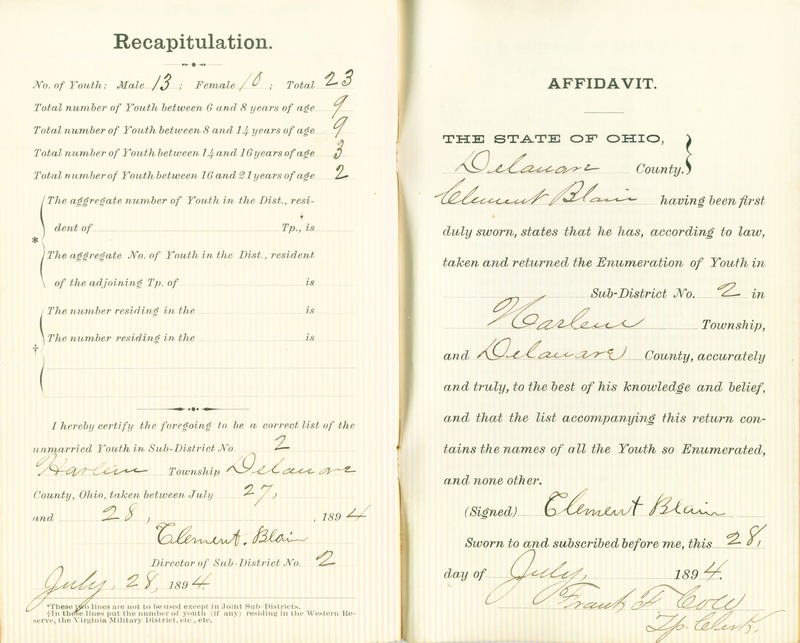 Recapitulation.
No. of Youth: Male 13; Female 10; Total 23
Total number of Youth between 6 and 8 years of age 9
Total number of Youth between 8 and 14 years of age 9
Total number of Youth between 14 and 16 years of age 3
Total number of Youth between 16 and 21 years of age 2
The aggregate number of Youth in the Dist., resi-
dent of Tp., is
*
The aggregate No. of Youth in the Dist., resident
of the adjoining Tp. of is
The number residing in the is
† The number residing in the is
I hereby certify the foregoing to be a correct list of the
unmarried Youth in Sub-District No. 2
Harlem Township Delaware
County, Ohio, taken between July 27,
and 28, , 1894
Clement. Blain
Director of Sub-District No. 2
July, 28, 1894.
*These two lines are not to be used except in Joint Sub-Districts.
†In these lines put the number of youth (if any) residing in the Western Re-
serve, the Virginia Military District, etc., etc.
AFFIDAVIT.
THE STATE OF OHIO,
Delaware County.
Clement Blain having been first
duly sworn, states that he has, according to law,
taken and returned the Enumeration of Youth in
Sub-District No. 2 in
Harlem Township,
and Delaware County, accurately
and truly, to the best of his knowledge and belief,
and that the list accompanying this return con-
tains the names of all the Youth so Enumerated,
and none other.
(Signed) Clement Blain
Sworn to and subscribed before me, this 28,
day of July, 1894.
Frank F Cole
Tp. Clerk.